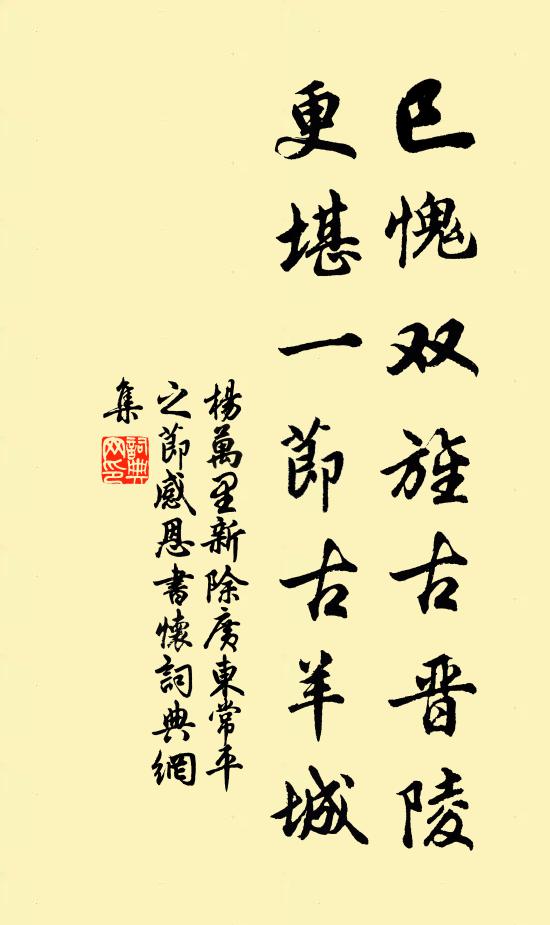 已愧双旌古晋陵
更堪一節古羊城
楊萬里新除廣東常平
之節感恩書懷詞典網
集
詞典
网印